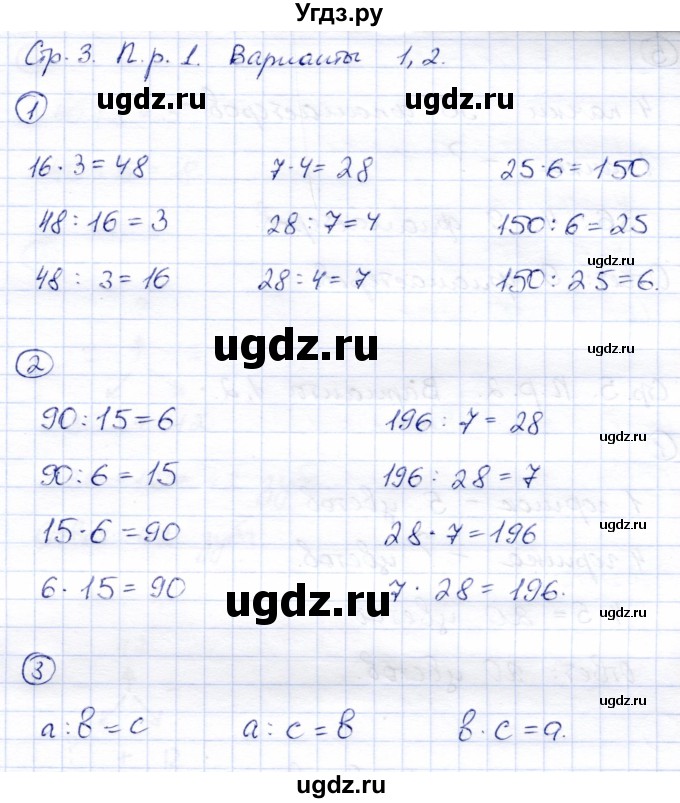 Угдз.ру
Стр. 3. П.р. 1. Варианты 1, 2.
ugdz.ru ugdz.ru
1
16 · 3 = 48 7 · 4 = 28 25 · 6 = 150
48 : 16 = 3 28 : 7 = 4 150 : 6 = 25
ugdz.ru
48 : 3 = 16 28 : 4 = 7 150 : 25 = 6.
ugdz.ru
ugdz.ru
2
90 : 15 = 6 196 : 7 = 28
ugdz.ru
90 : 6 = 15 196 : 28 = 7
15 · 6 = 90 28 · 7 = 196
ugdz.ru
6 · 15 = 90 7 · 28 = 196.
ugdz.ru
ugdz.ru
3
ugdz.ru
a : b = c a : c = b b · c = a.
ugdz.ru